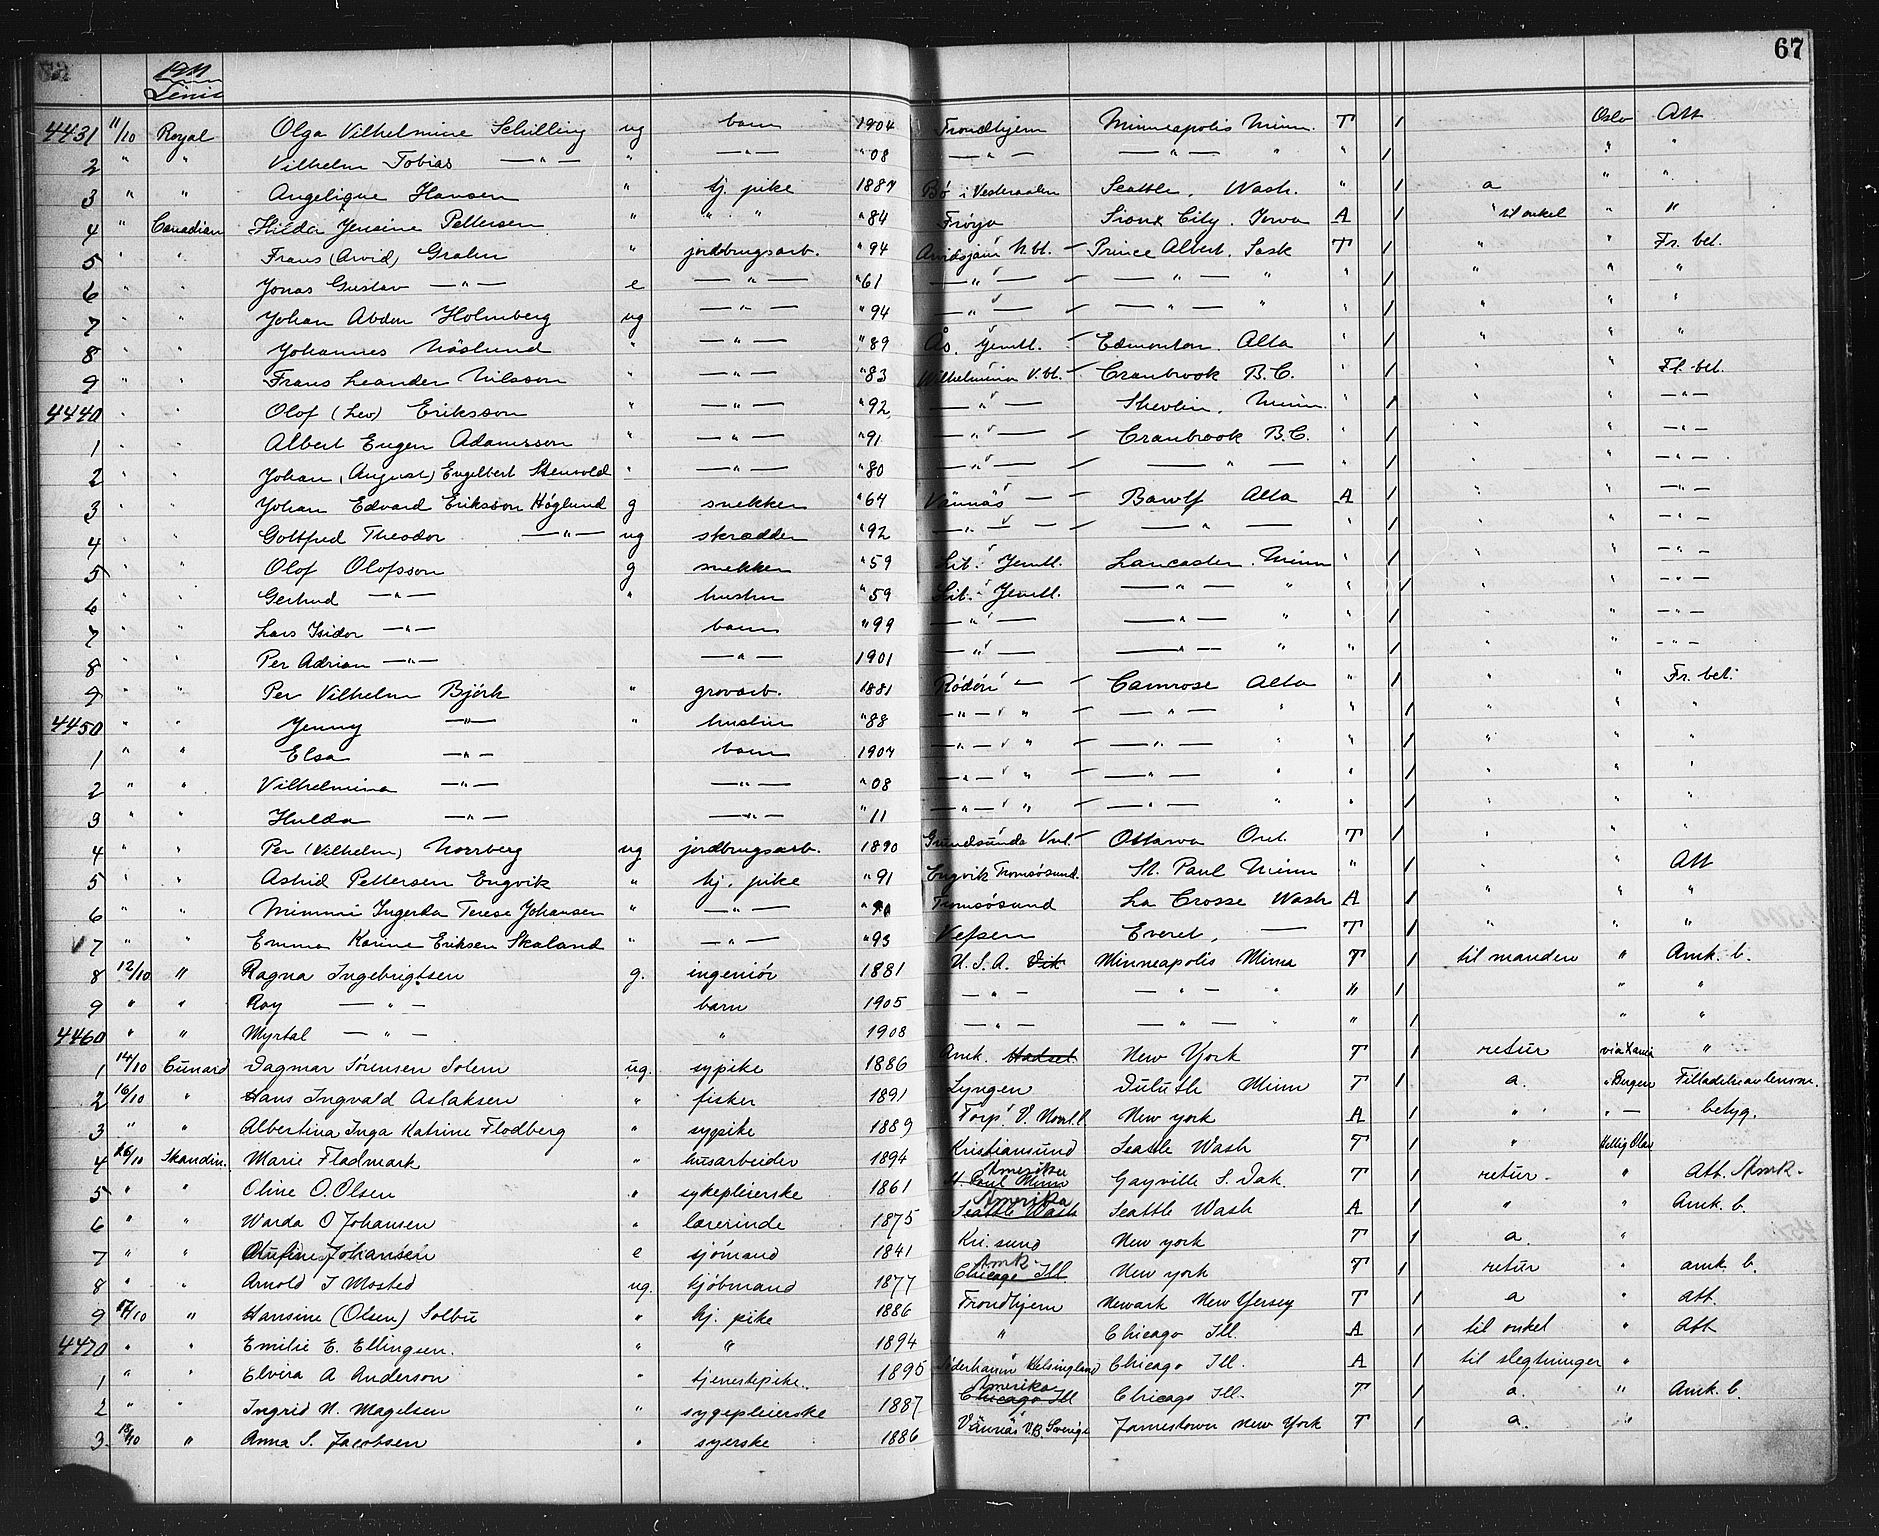 67
1911
Linie
4431 11/10 Royal Olga Vilhelmine Schilling ug barn 1904 Trondhjem Minneapolis Minn. T 1 Oslo Att
2 " " Vilhelm Tobias —"— " —"— "08 —"— —"— " " 1 " "
3 " " Angelique Hansen " tj. pike 1887 Bø i Vesteraalen Seattle, Wash. " 1 a " "
4 " Canadian Hilda Jensine Pettersen " " " "84 Frøya Sioux City, Iowa A 1 " til onkel " "
5 " " Frans (Arvid) Grahn " jordbrugsarb. "94 Arvidsjaur N.bt. — Prince Albert, Sask T 1 " " Fr. bet.
6 " " Jonas Gustav —"— e —"— "61 —"— — —"— " " 1 " " "
7 " " Johan Abdon Holmberg ug —"— "94 —"— — —"— " " 1 " " "
8 " " Johannes Näslund " —"— "89 Ås, Jemtl. — Edmonton, Alta " 1 " " "
9 " " Frans Leander Nilsson " —"— "83 Wilhelmina V.bt. — Cranbrook B.C. " 1 " " Fl. bet.
4440 " " Olof (Lev) Eriksson " —"— "92 —"— Shevlin, Minn. " 1 " " —"—
1 " " Albert Eugen Adamsson " —"— "91 —"— — Cranbrook B.C. " 1 " " —"—
2 " " Johan (August) Engelbert Stenvold " —"— "80 —"— — —"— " 1 " " —"—
3 " " Johan Edvard Eriksson Höglund g snekker "64 Vännäs — — Bawlf Alta A 1 " " —"—
4 " " Gottfred Theodor —"— ug skrædder "92 —"— — — —"— " 1 " " —"—
5 " " Olof Olofsson g snekker "59 Lit. Jemtl. Lancaster, Minn " 1 " " —"—
6 " " Gertrud —"— " hustru "59 Lit. Jemtl. —"— " " 1 " " —"—
7 " " Lars Isidor —"— barn "99 —"— —"— " " 1 " " —"—
8 " " Per Adrian —"— —"— 1901 —"— —"— " " 1 " " —"—
9 " " Per Vilhelm Björk " grovarb. 1881 Rödön — — Camrose Alta " 1 " " Fr. bet.
4450 " " Jenny —"— " hustru "88 —"— " — —"— " " 1 " " "
1 " " Elsa —"— barn 1907 —"— " — —"— " " 1 " " "
2 " " Vilhelmina —"— —"— "08 —"— " — —"— " " 1 " " "
3 " " Hulda —"— —"— "11 —"— " — —"— " " 1 " " "
4 " " Per (Vilhelm) Norrberg ug jordbrugsarb. 1890 Grundsunda Vnl. — Ottawa Ont. T 1 " " "
5 " " Astrid Pettersen Engvik " tj. pike "91 Engvik Tromsøsund. St. Paul Minn " 1 " Att
6 " " Mimmi Ingerda Terese Johansen " —"— Tromsøsund La Crosse Wash A 1 " " "
7 " " Emma Karine Eriksen Skaland " —"— "93 Vefsen Everet, — T 1 " " "
8 12/10 " Ragna Ingebrigtsen g. ingeniør 1881 U.S.A. Vik Minneapolis Minna T 1 til manden " Amk. b.
9 " " Roy —"— barn 1905 —"— —"— " " 1 " "
4460 " " Myrtal —"— " 1908 —"— —"— " " 1 " "
1 14/10 Cunard Dagmar Sørensen Solem ug. sypike 1886 Amk. Hadsel New York T 1 retur via Xania "
2 16/10 " Hans Ingvald Aslaksen " fisker 1891 Lyngen Duluth Minn T 1 a. " Bergen
3 " " Albertina Inga Katrine Flodberg " sypike 1889 Torp V. Norrl. New york A 1 " " — betyg.
4 16/10 Skandin. Marie Fladmark " husarbeider 1894 Kristiansund Seattle Wash T 1 " Hellig Olav
5 " " Oline O. Olsen " sykepleierske 1861 St. Paul Minn Amerika Gayville S. Dak. T 1 retur " Att. Amk.
6 " " Warda O Johansen " lærerinde 1875 Seattle Wash Amerika Seattle Wash A 1 " " Amk. b.
7 " " Johansen e sjömand 1841 Kri.sund New york T 1 a. "
8 " " Arnold J Mosted ug. kjøbmand 1877 Chicago Ill Amk. New york T 1 retur " amk. b.
9 17/10 " Hansine (Olsen) Solbu " tj. pike 1886 Trondhjem Newark New Yersey T 1 a " att.
4470 " " Emilie E. Ellingsen. " " 1894 " Chicago Ill. A 1 til onkel " Att
1 " " Elvira A Anderson " tjenestepike. 1895 Söderhamn Helsingland Chicago Ill. A 1 til slegtninger "
2 " " Ingrid N. Magelsen " sygepleierske 1887 Chicago Ill Amerika Chicago Ill. T 1 a. " Amk. b.
3 18/10 " Anna S. Jacobsen " syerske 1886 Vännäs V.B. Sverige Jamestown New York T 1 a. "